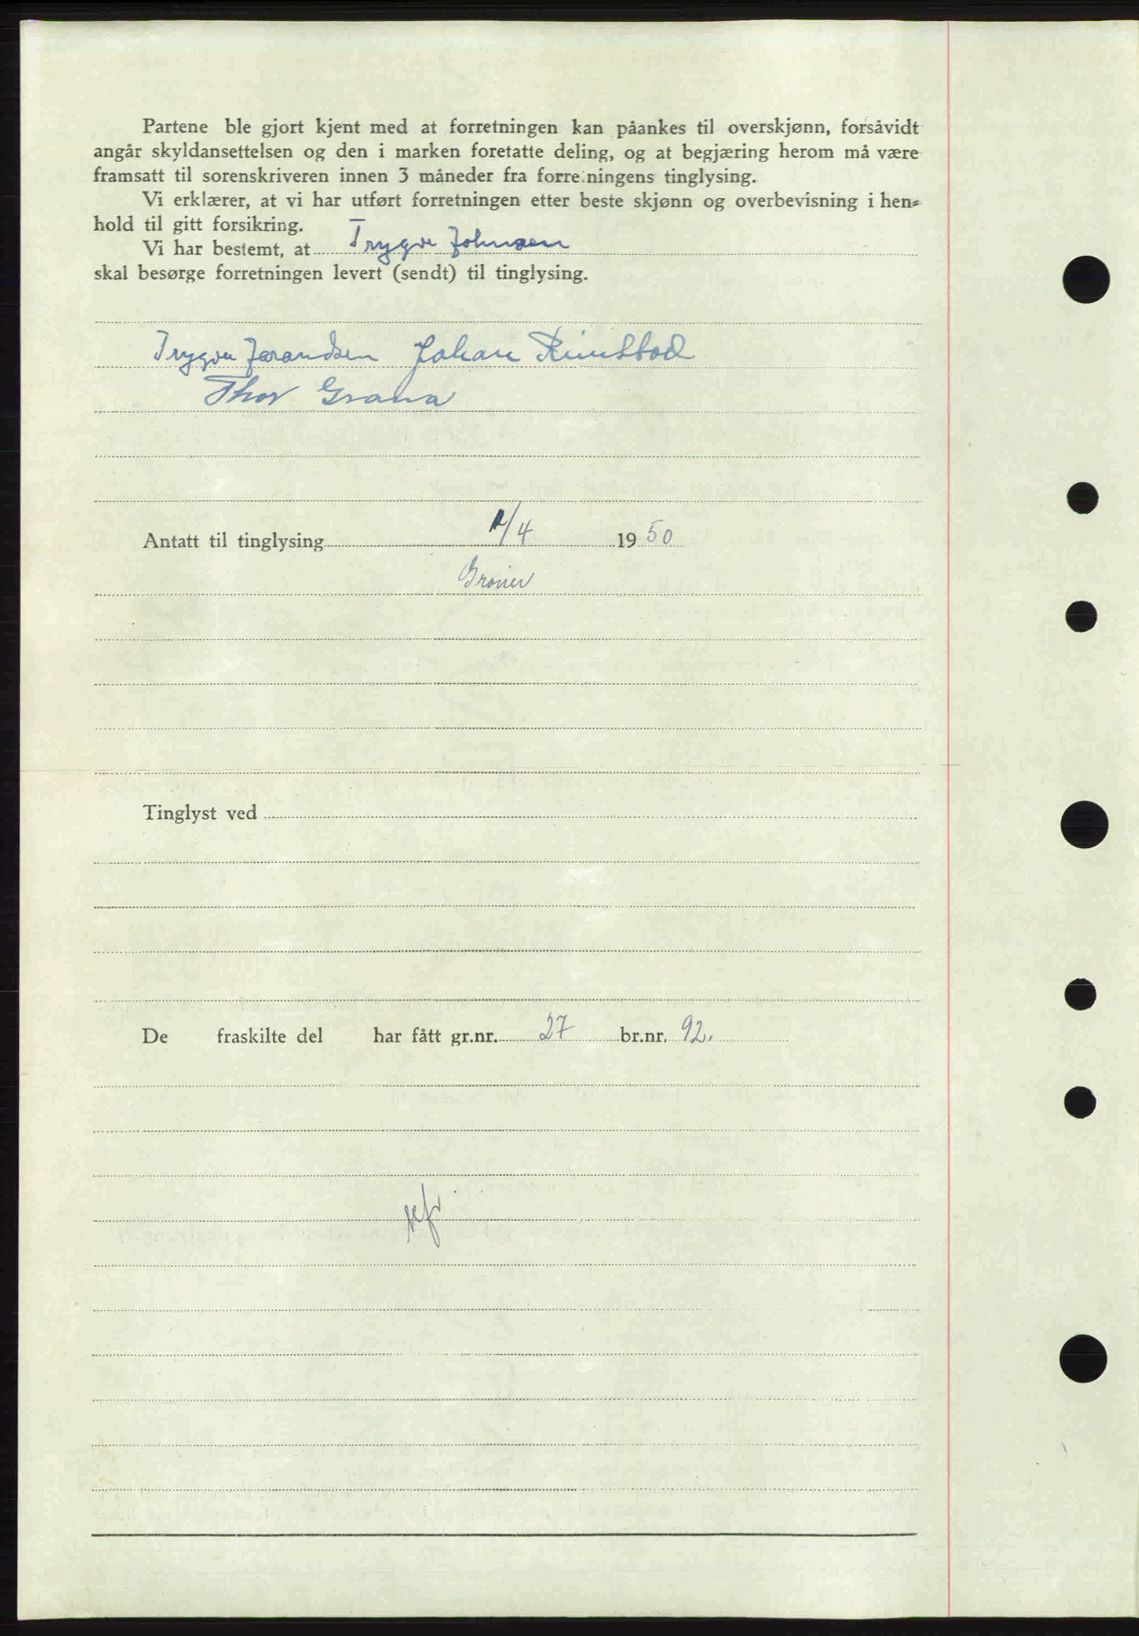 Partene ble gjort kjent med at forretningen kan påankes til overskjønn, forsåvidt
angår skyldansettelsen og den i marken foretatte deling, og at begjæring herom må være
framsatt til sorenskriveren innen 3 måneder fra forre.ningens tinglysing.
Vi erklærer, at vi har utført forretningen etter beste skjønn og overbevisning i hen=
hold til gitt forsikring.
Vi har bestemt, at Trygve Johnsen
skal besørge forretningen levert (sendt) til tinglysing.
Trygve Johan
Thor
Antatt til tinglysing /4 1950
Tinglyst ved
De fraskilte del har fått gr.nr. 27 br.nr. 92.